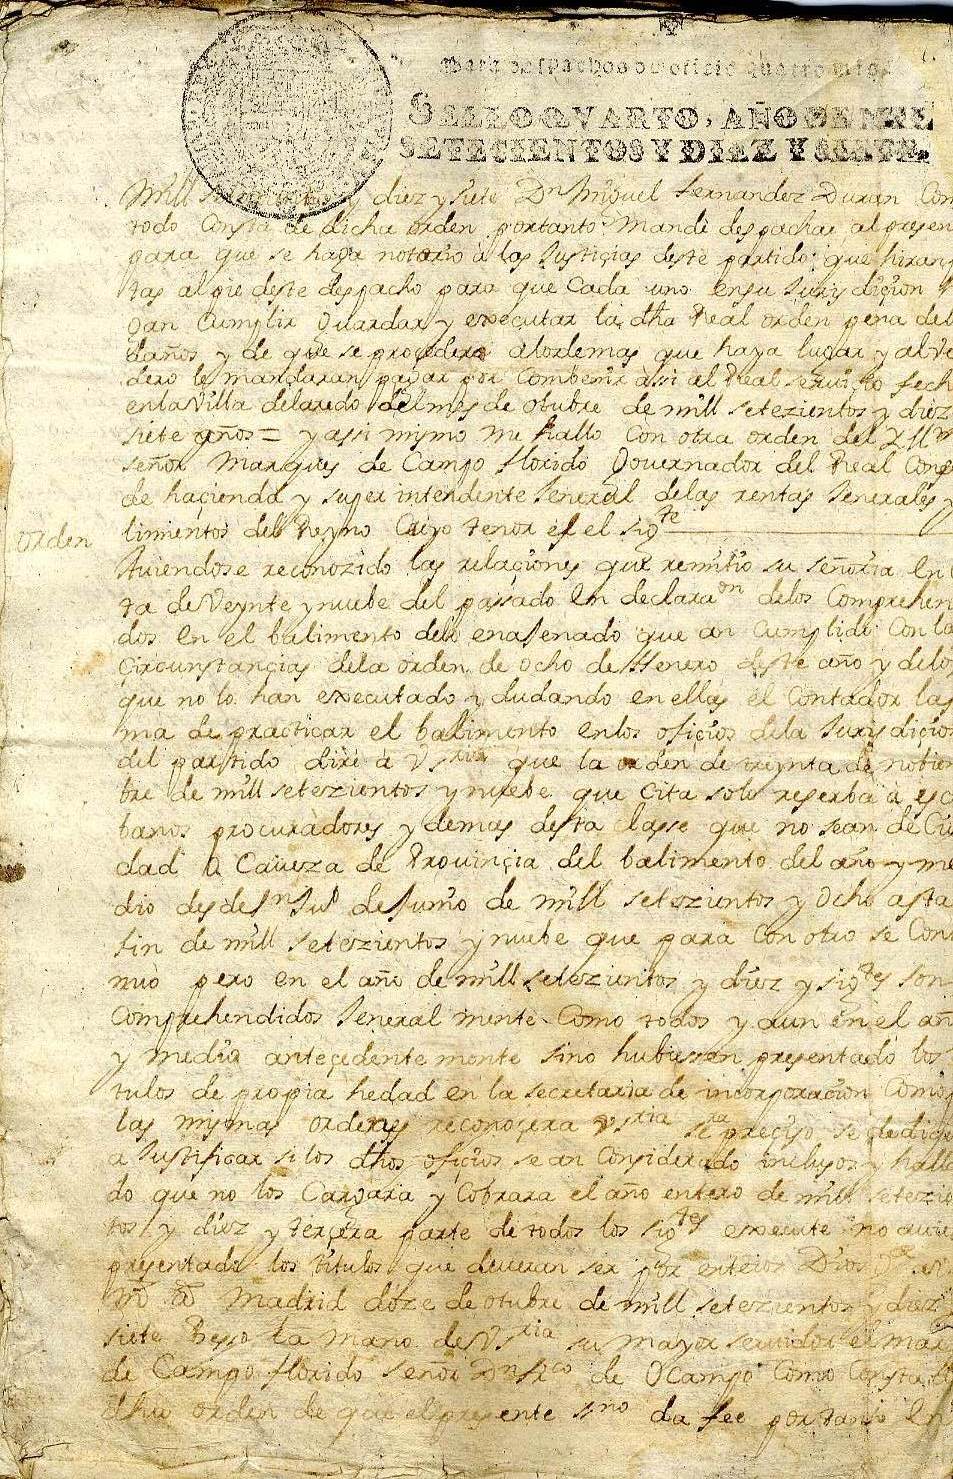 Para despachos de oficio quatro mrs.
SELLO QVARTO, AÑO DE MIL
SETECIENTOS Y DIEZ Y SIETE.
Mill y diez y siete Dn Miguel fernandez Duran Com
todo Consta de dicha orden portanto Mande despachar al presen
para que se haga notorio a las Justiçias deste partido que hiran
tas al pie deste despacho para que Cada uno ensu Jurisdiçion
gan Cumplir Guardar y executar la dha Real orden pena del
daños y de que se procedera alordemas que haya lugar y al Ve
dero le mandaran pagar por Combenir assi al Real serviçio fech
enla Villa delaredo del mes de otubre de mill setezientos y diez
siete años = y assi mismo me hallo Con otra orden del Yllmo
señor Marques de Campo florido Governador del Real Conse
de haçienda y superintendente Jeneral delas rentas Jenerales y
orden
limientos del Reyno Cuyo tenor es el sigte
Aviendose reconozido las relaçiones que remitio su señoria en C
ta de Veynte y nuebe del passado en declaraon delos Comprehen
dos en el balimento delo enajenado que an Cumplido Con la
Çircunstançias dela orden de ocho de Henero deste año y delos
que no lo han executado y dudando en ellas el Contador la
ma de practicar el balimento enlos ofiçios dela Jurisdiçion
del partido dire a Vsria que la orden de treynta de nobiem
bre de mill setezientos y nuebe que Cita solo reserba a esc
banos procuradores y demas desta classe que no sean de Ciu
dad o Caveza de Provinçia del balimento del año y me
dio desde de Junio de mill setezientos y Ocho asta
fin de mill setezientos y nuebe que para Con otro se Cont
nuo pero en el año de mill setezientos y diez y sigtes son
Comprehendidos Jeneral mente Como todos y aun en el añ
y medio anteçedente mente sino hubiesen presentado los
tulos de propia hedad en la secretaria de incorporaçion Como
las mismas ordenes reconoçera Vsria sera preçiso se dedique
a Justificar si los dhos ofiçios se an Considerado inclusos y halla
do que no los Cargaria y Cobrara el año entero de mill setezie
tos y diez y terçera parte de todos los sigtes execute no avie
presentado los titulos que deveran ser por enteros Dios ge a V.
ms as Madrid doze de otubre de mill setezientos y diez
siete Beso La mano de Vsria su mayor servidor el mar
de Campo florido señor Dn frco de Ocampo Como Consta
dha orden de que el presente sno da fee portanto en